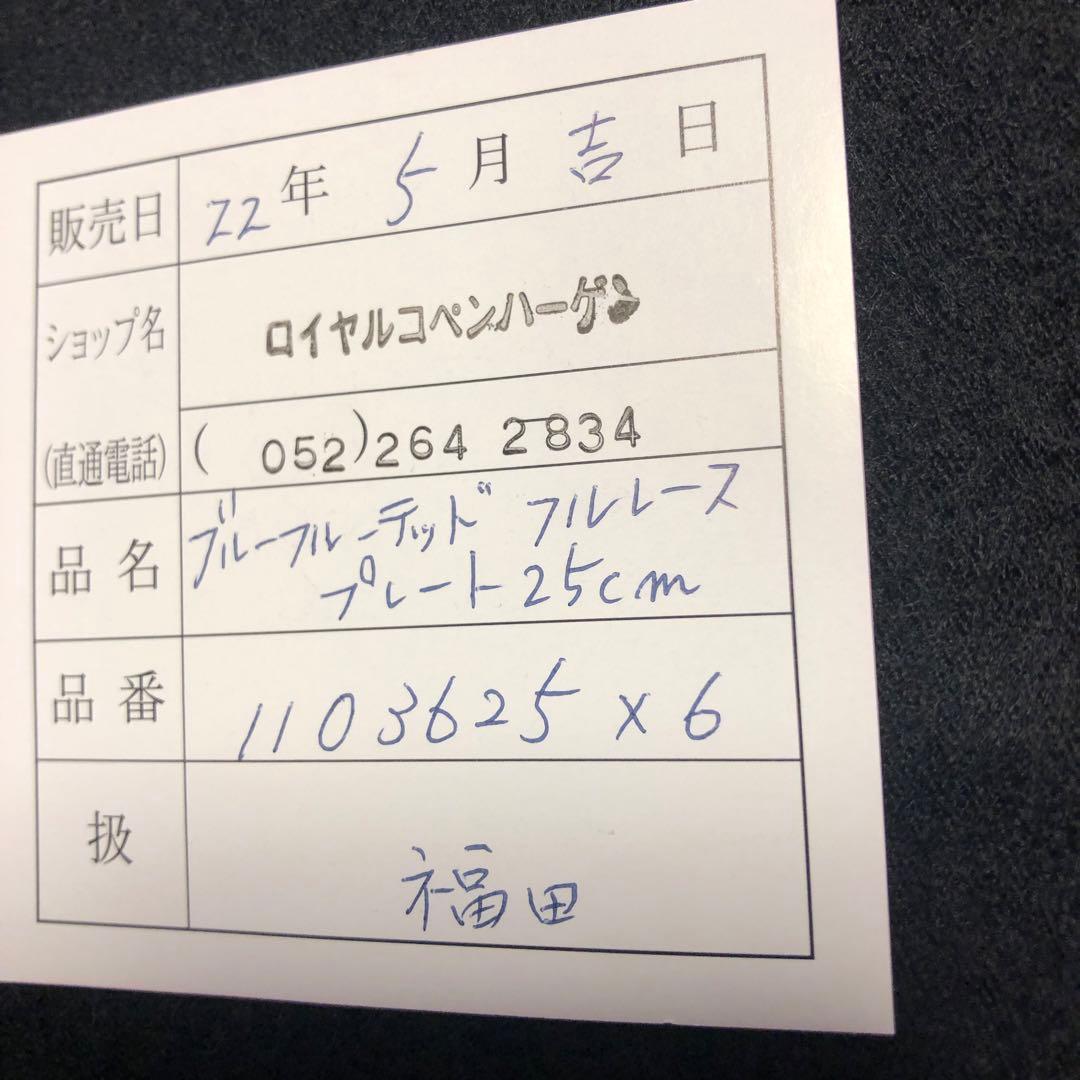 販売日 22年 5月 吉日
ショップ名 ロイヤルコペンハーゲン
(直通電話) ( 052)264 2834
品名 ブルーフルーテッド フルレース
プレート25cm
品番 1103625 x 6
扱 福田